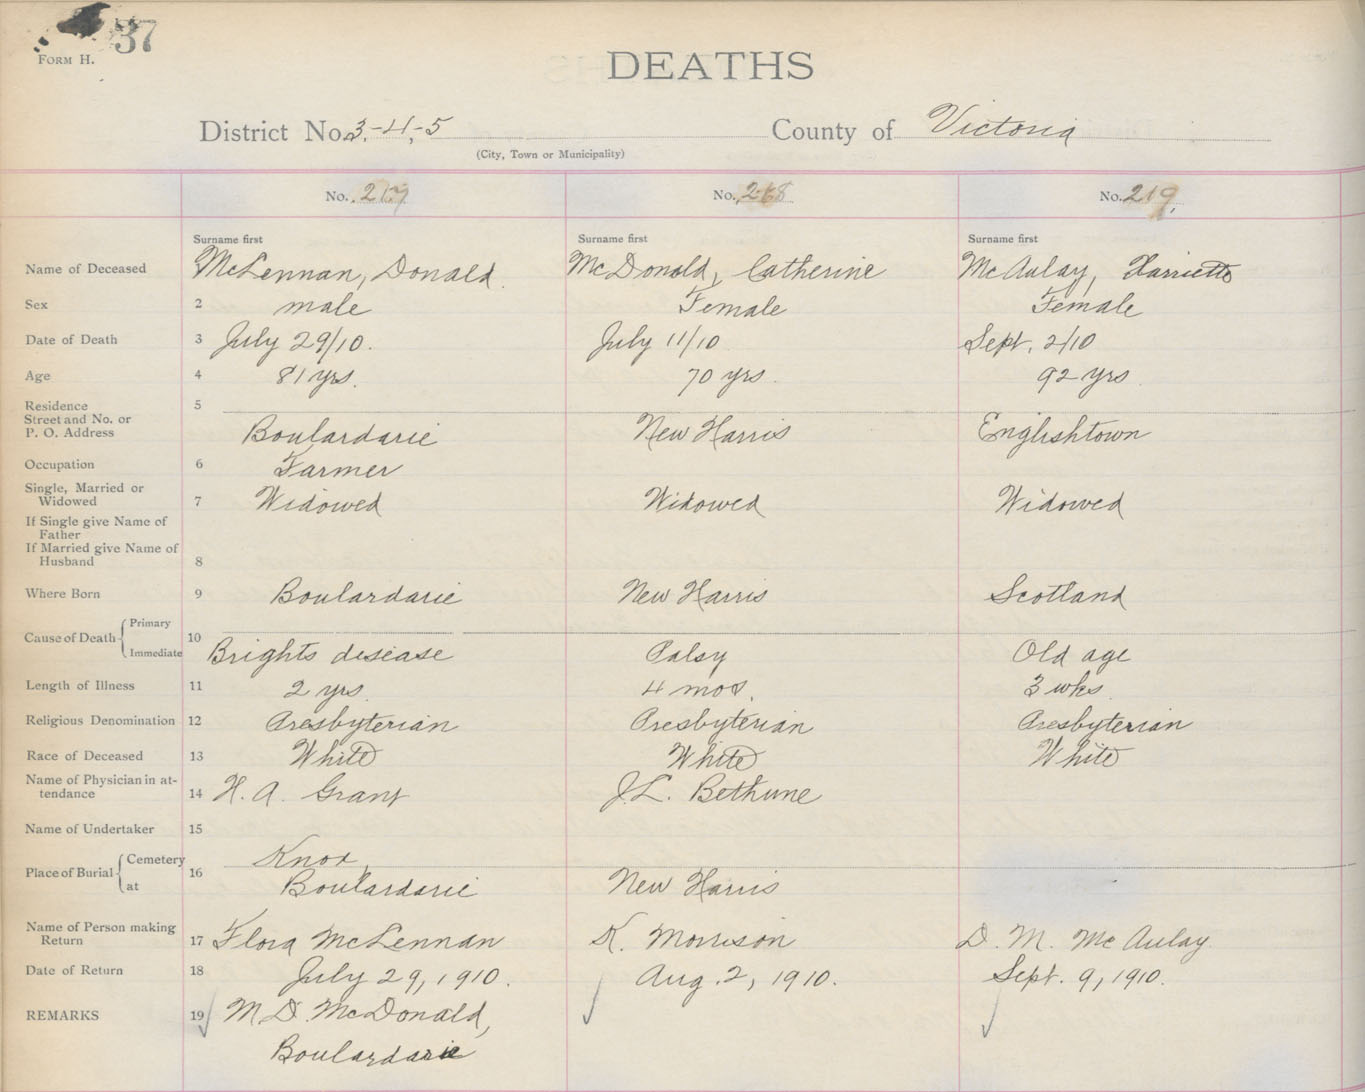 37
FORM H.
DEATHS
District No. 3-4,-5 County of Victoria
(City, Town or Municipality)
No. 217 No. 218 No. 219,
Surname first Surname first Surname first
Name of Deceased McLennan, Donald McDonald, Catherine McAulay, Harriette
Sex 2 male Female Female
Date of Death 3 July 29/10. July 11/10 Sept. 2/10
Age 4 81 yrs. 70 yrs. 92 yrs
Residence 5
Street and No. or
P. O. Address Boulardarie New Harris Englishtown
Occupation 6 Farmer
Single, Married or
Widowed 7 Widowed Widowed Widowed
If Single give Name of
Father
If Married give Name of
Husband 8
Where Born 9 Boulardarie New Harris Scotland
Primary
Cause of Death 10
Immediate Brights disease Palsy Old age
Length of Illness 11 2 yrs. 4 mos. 3 wks.
Religious Denomination 12 Presbyterian Presbyterian Presbyterian
Race of Deceased 13 White White White
Name of Physician in at-
tendance 14 H. A. Grant J.L. Bethune
Name of Undertaker 15
Cemetery Knox,
Place of Burial 16
at Boulardarie New Harris
Name of Person making
Return 17 Flora McLennan K. Morrison D. M. McAulay
Date of Return 18 July 29, 1910. Aug. 2, 1910. Sept. 9, 1910.
REMARKS 19 M. D. McDonald,
Boulardarie